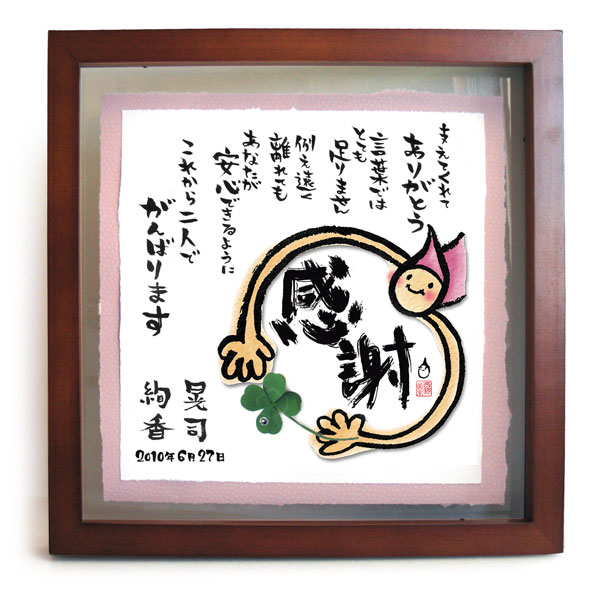 支えてくれて
ありがとう
言葉では
とても
足りません
例え遠く
離れても
あなたが
安心できるように
これから二人で
がんばります
感謝
晃司
絢香
2010年6月27日